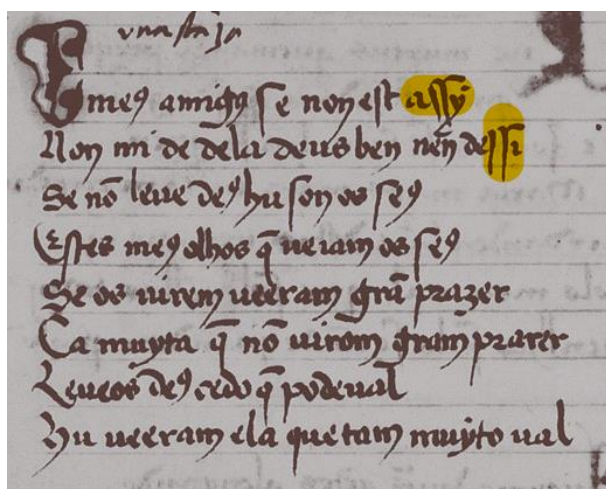 E meꝯ amigꝯ se non est assy
Non mi de dela deus ben nen͂ dessi
Se nō leue deꝯ hu son os seꝯ
Estes meꝯ olhos q̄ ueiam os seꝯ
Se os uirem ueeram grā prazer
Ca muyta q̄ nō uirom gram prazer
Leueos deꝯ cedo q̄ podeual
Hu ueeram ela que tam muyto ual